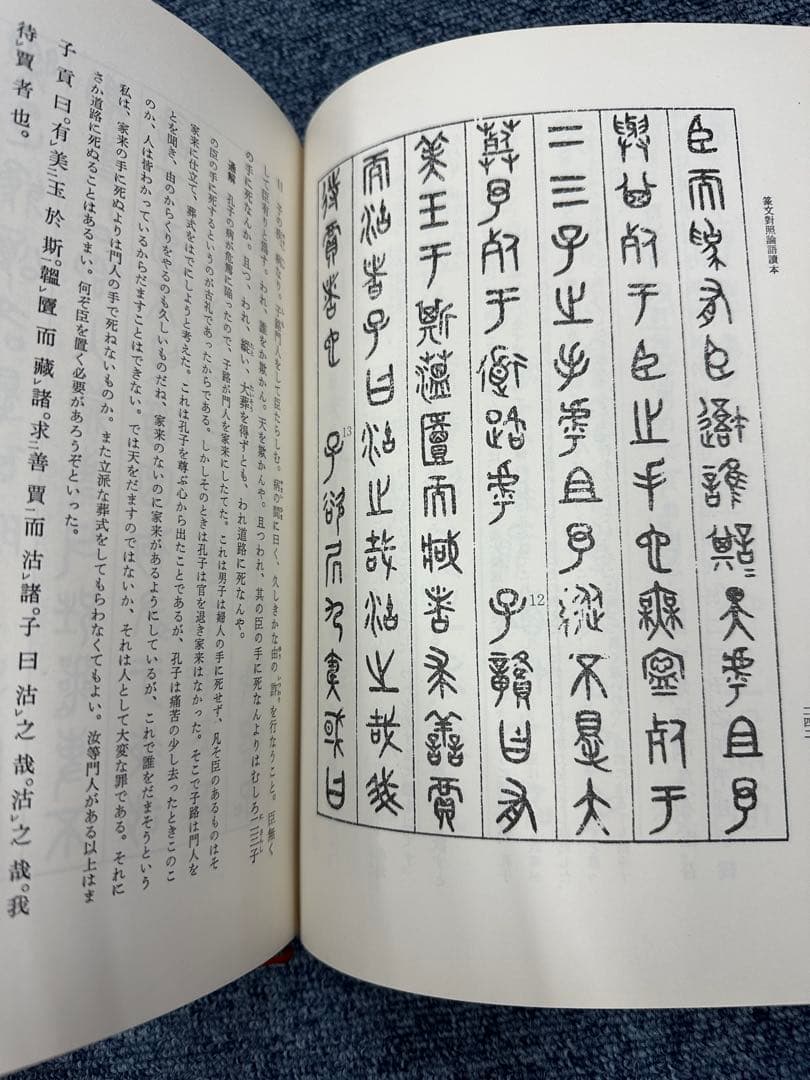 篆文對照論語讀本
二四二
臣而爲有臣吾誰欺=天乎且予
與其死于臣之手也無寧死于
二三子之手乎且予縱不得大
葬予死于道路乎 12 子贛曰有
美玉于斯韞匵而藏諸求善賈
而沽諸子曰沽之哉沽之哉我
待賈者也 13 子欲居九夷或曰
11 子の病、病なり。子路門人をして臣たらしむ。病の間に曰く、久しきかな由の詐を行なうこと。臣無く
して臣有りと爲す。われ、誰をか欺かん。天を欺かんや。且つわれ、其の臣の手に死なんよりはむしろ二三子
の手に死なんか。且つ、われ、縱い、大葬を得ずとも、われ道路に死なんや。
通解 孔子の病が危篤に陥ったので、子路が門人を家来にしたてた。これは男子は婦人の手に死せず、凡そ臣のあるものはそ
の臣の手に死するというのが古礼であったからである。しかしそのときは孔子は官を退き家来はなかった。そこで子路は門人を
家来に仕立て、葬式をはでにしようと考えた。これは孔子を尊ぶ心から出たことであるが、孔子は痛苦の少し去ったときこのこ
とを聞き、由のからくりをやるのも久しいものだね、家来のないのに家来があるようにしているが、これで誰をだまそうという
のか、人は皆わかっているからだますことはできない。では天をだますのではないか、それは人として大変な罪である。それに
私は、家来の手に死ぬよりは門人の手で死ねないものか。また立派な葬式をしてもらわなくてもよい。汝等門人がある以上はま
さか道路に死ぬることはあるまい。何ぞ臣を置く必要があろうぞといった。
子貢曰。有㆑美㆓玉於斯㆒。韞㆑匵而藏㆑諸。求㆓善賈㆒而沽㆑諸。子曰沽㆑之哉。沽㆑之哉。我
待㆑賈者也。